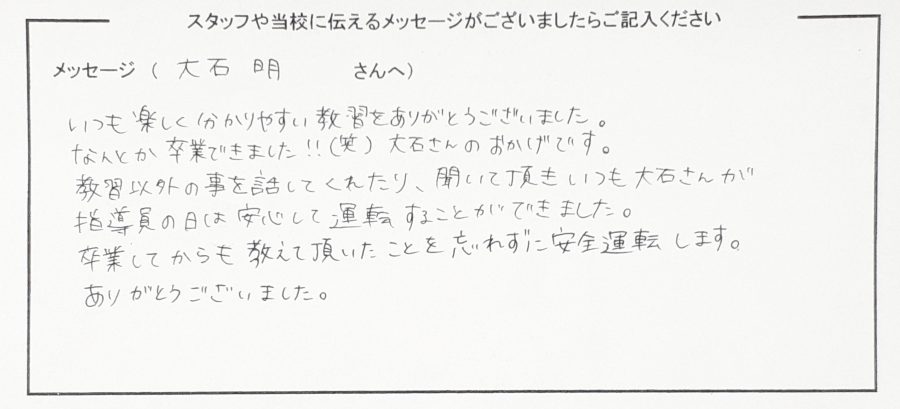 スタッフや当校に伝えるメッセージがございましたらご記入ください
メッセージ ( 大石 明 さんへ)
いつも楽しく分かりやすい教習をありがとうございました。
なんとか卒業できました!!(笑) 大石さんのおかげです。
教習以外の事を話してくれたり、聞いて頂きいつも大石さんが
指導員の日は安心して運転することができました。
卒業してからも教えて頂いたことを忘れずに安全運転します。
ありがとうございました。